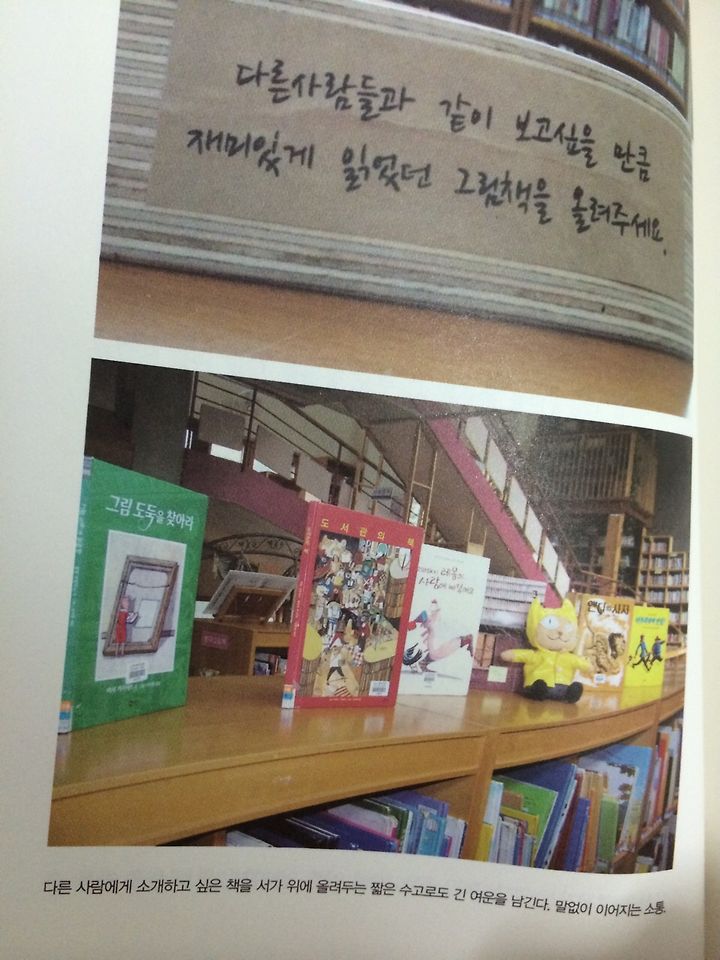 다른사람들과 같이 보고싶을 만큼
재미있게 읽었던 그림책을 올려주세요.
그림 도둑을 찾아라
도서관의 책
사랑에 빠질까요
앤디와 사자
다른 사람에게 소개하고 싶은 책을 서가 위에 올려두는 짧은 수고로도 긴 여운을 남긴다. 말없이 이어지는 소통.